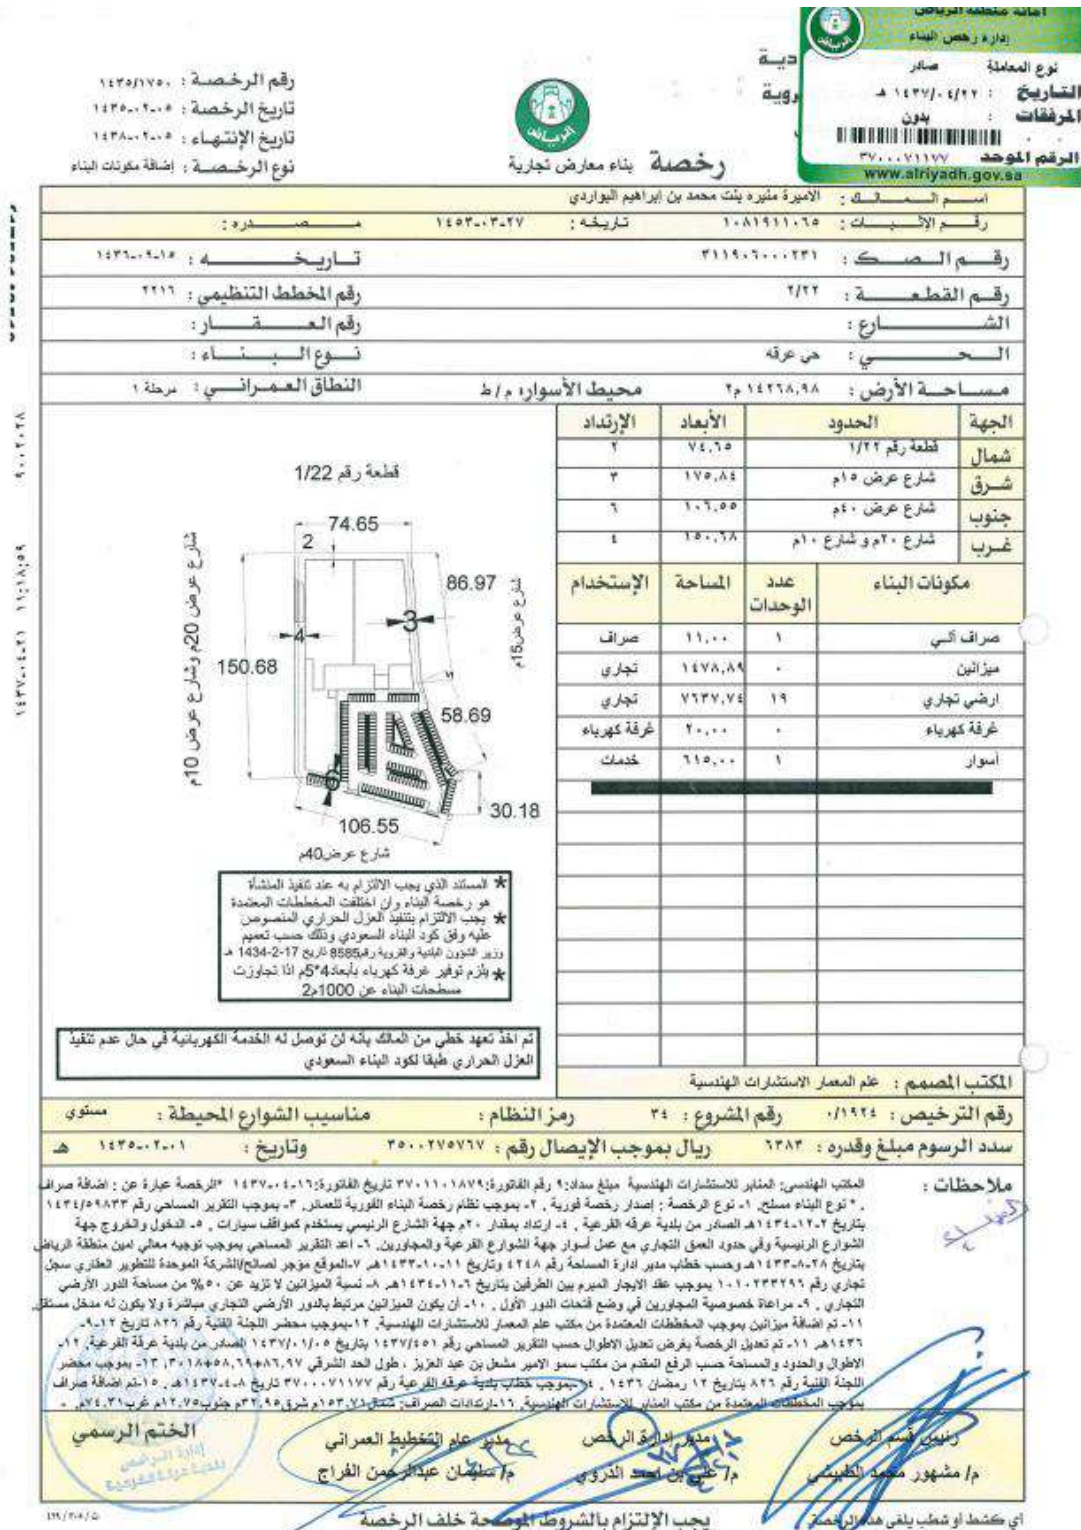 أمانة منطقة الرياض
إدارة رخص البناء
نوع المعاملة صادر
التاريخ : ١٤٣٧/٠٤/٢٢ هـ
المرفقات : بدون
الرقم الموحد ٣٧٠٠٠٧١١٧٧
www.alriyadh.gov.sa
دية
روية
الرياض
رخصة بناء معارض تجارية
رقم الرخصة : ١٤٣٥/١٧٥٠
تاريخ الرخصة : ١٤٣٥-٠٢-٠٥
تاريخ الإنتهاء : ١٤٣٨-٠٢-٠٥
نوع الرخصة : إضافة مكونات البناء
اسم المالك : الاميرة منيره بنت محمد بن إبراهيم البواردي
رقم الإثبات : ١٠٨١٩١١٠٦٥ تاريخه : ١٤٥٣-٠٣-٢٧ مصدره :
رقم الصك : ٣١١٩٠٦٠٠٠٢٣١ تاريخه : ١٤٣٦-٠٩-١٥
رقم القطعة : ٢/٢٢ رقم المخطط التنظيمي : ٢٢١٦
الشارع : رقم العقار :
الحي : حي عرقه نوع البناء :
مساحة الأرض : ١٤٢٦٨,٩٨ م٢ محيط الأسوار : م/ط النطاق العمراني : مرحلة ١
الجهة الحدود الأبعاد الإرتداد
شمال قطعة رقم ١/٢٢ ٧٤,٦٥ ٢
شرق شارع عرض ١٥م ١٧٥,٨٤ ٣
جنوب شارع عرض ٤٠م ١٠٦,٥٥ ٦
غرب شارع ٢٠م و شارع ١٠م ١٥٠,٦٨ ٤
مكونات البناء عدد الوحدات المساحة الإستخدام
صراف آلي ١ ١١,٠٠ صراف
ميزانين ٠ ١٤٧٨,٨٩ تجاري
ارضي تجاري ١٩ ٧٦٣٧,٧٤ تجاري
غرفة كهرباء ٠ ٢٠,٠٠ غرفة كهرباء
أسوار ١ ٦١٥,٠٠ خدمات
قطعة رقم 1/22
74.65
2
86.97
شارع عرض15م
3
4
150.68
شارع عرض 20م وشارع عرض 10م
58.69
6
30.18
106.55
شارع عرض40م
* المستند الذي يجب الالتزام به عند تنفيذ المنشأة
هو رخصة البناء وان اختلفت المخططات المعتمدة
* يجب الالتزام بتنفيذ العزل الحراري المنصوص
عليه وفق كود البناء السعودي وذلك حسب تعميم
وزير الشؤون البلدية والقروية رقم8585 تاريخ 17-2-1434 هـ
* يلزم توفير غرفة كهرباء بأبعاد4*5م اذا تجاوزت
مسطحات البناء عن 1000م2
تم اخذ تعهد خطي من المالك بأنه لن توصل له الخدمة الكهربائية في حال عدم تنفيذ
العزل الحراري طبقا لكود البناء السعودي
المكتب المصمم : علم المعمار الاستشارات الهندسية
رقم الترخيص : ٠/١٩٢٤ رقم المشروع : ٣٤ رمز النظام : مناسيب الشوارع المحيطة : مستوي
سدد الرسوم مبلغ وقدره : ٦٣٨٣ ريال بموجب الإيصال رقم : ٣٥٠٠٢٧٥٧٦٧ وتاريخ : ١٤٣٥-٠٢-٠١ هـ
ملاحظات : المكتب الهندسي: المنابر للاستشارات الهندسية مبلغ سداد:٩ رقم الفاتورة:٣٧٠١١٠١٨٧٩ تاريخ الفاتورة:١٦-٠٤-١٤٣٧ *الرخصة عبارة عن : اضافة صراف
. * نوع البناء مسلح. ١- نوع الرخصة : إصدار رخصة فورية . ٢- بموجب نظام رخصة البناء الفورية للعمائر. ٣- بموجب التقرير المساحي رقم ١٤٣٤/٥٩٨٣٣
بتاريخ ٢-١٢-١٤٣٤هـ الصادر من بلدية عرقه الفرعية . ٤- ارتداد بمقدار ٢٠م جهة الشارع الرئيسي يستخدم كمواقف سيارات . ٥- الدخول والخروج جهة
الشوارع الرئيسية وفي حدود العمق التجاري مع عمل أسوار جهة الشوارع الفرعية والمجاورين. ٦- اعد التقرير المساحي بموجب توجيه معالي امين منطقة الرياض
بتاريخ ٢٨-٨-١٤٣٣هـ وحسب خطاب مدير ادارة المساحة رقم ٤٢٤٨ وتاريخ ١١-١٠-١٤٣٣هـ. ٧-الموقع مؤجر لصالح/الشركة الموحدة للتطوير العقاري سجل
تجاري رقم ١٠١٠٢٣٣٢٩٦ بموجب عقد الايجار المبرم بين الطرفين بتاريخ ٦-١١-١٤٣٤هـ. ٨- نسبة الميزانين لا تزيد عن ٥٠% من مساحة الدور الأرضي
التجاري . ٩- مراعاة خصوصية المجاورين في وضع فتحات الدور الأول . ١٠- أن يكون الميزانين مرتبط بالدور الأرضي التجاري مباشرة ولا يكون له مدخل مستقل.
١١- تم اضافة ميزانين بموجب المخططات المعتمدة من مكتب علم المعمار للاستشارات الهندسية. ١٢-بموجب محضر اللجنة الفنية رقم ٨٢٦ تاريخ ١٢-٩-
١٤٣٦هـ. ١١- تم تعديل الرخصة بغرض تعديل الاطوال حسب التقرير المساحي رقم ١٤٣٧/٤٥١ بتاريخ ١٤٣٧/٠١/٠٥ الصادر من بلدية عرقة الفرعية. ١٢-
الاطوال والحدود والمساحة حسب الرفع المقدم من مكتب سمو الامير مشعل بن عبد العزيز . طول الحد الشرقي ٨٦,٩٧+٥٨,٦٩+٣٠,١٨. ١٣- بموجب محضر
اللجنة الفنية رقم ٨٢٦ بتاريخ ١٢ رمضان ١٤٣٦ . ١٤-بموجب خطاب بلدية عرقه الفرعية رقم ٣٧٠٠٠٧١١٧٧ تاريخ ٨-٤-١٤٣٧هـ . ١٥-تم اضافة صراف
بموجب المخططات المعتمدة من مكتب المنابر للاستشارات الهندسية. ١٦-ارتدادات الصراف: شمال١٥٣,٧١م شرق٣٢,٩٥م جنوب١٢,٧٥م غرب٧٤,٣١م. -
رئيس قسم الرخص مدير إدارة الرخص مدير عام التخطيط العمراني الختم الرسمي
م/ مشهور محمد الطبيشي م/ علي بن احمد الدروي م/ سليمان عبدالرحمن الفراج
أي كشط أو شطب يلغي هذه الرخصة يجب الإلتزام بالشروط الموضحة خلف الرخصة
١٤٣٧-٠٤-٢١ ١١:١٨:٥٩